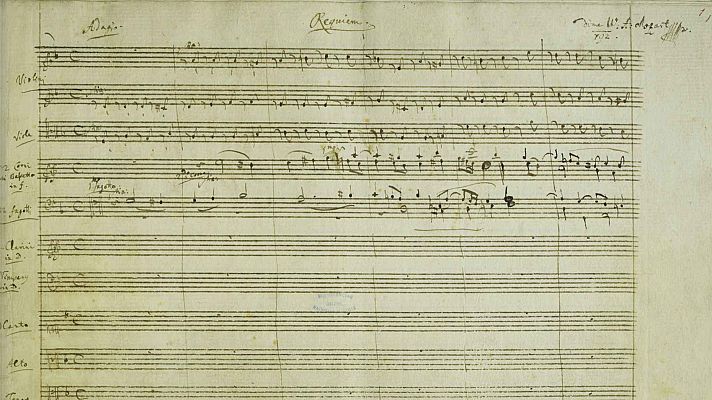 Adagio.
Requiem.
di me W: A: Mozart mp.
792.
1
Violini
Viole
2 Corni
di Bassetto
in f.
2 Fagotti
Clarini
in D.
Timpani
in D.
Canto
Alto
Tenore